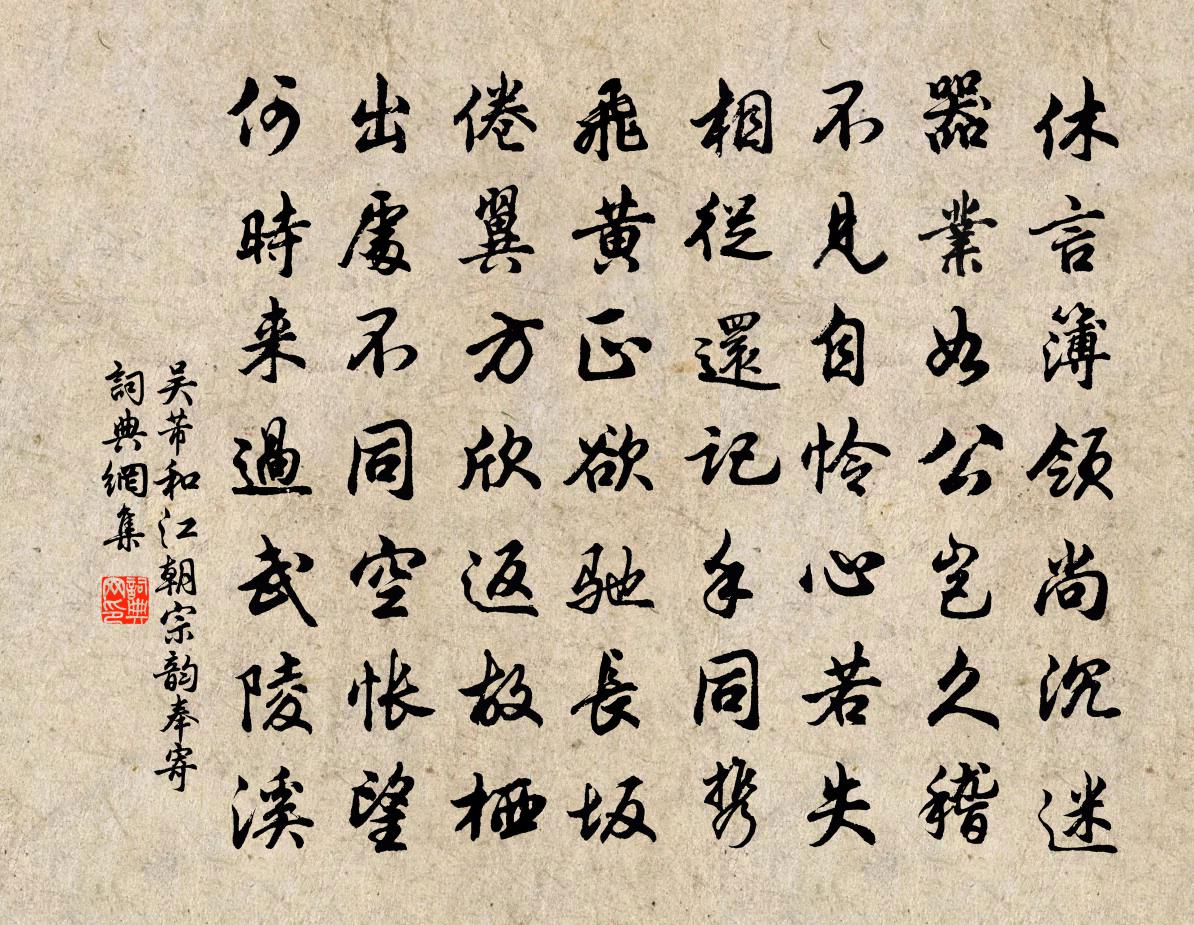 休言簿領尚沉迷
器業如公豈久稽
不見自憐心若失
相從還記手同携
飛黃正欲馳長坂
倦翼方欣返故栖
出處不同空悵望
何時来過武陵溪
吴芾和江朝宗韵奉寄
詞典網集
詞典